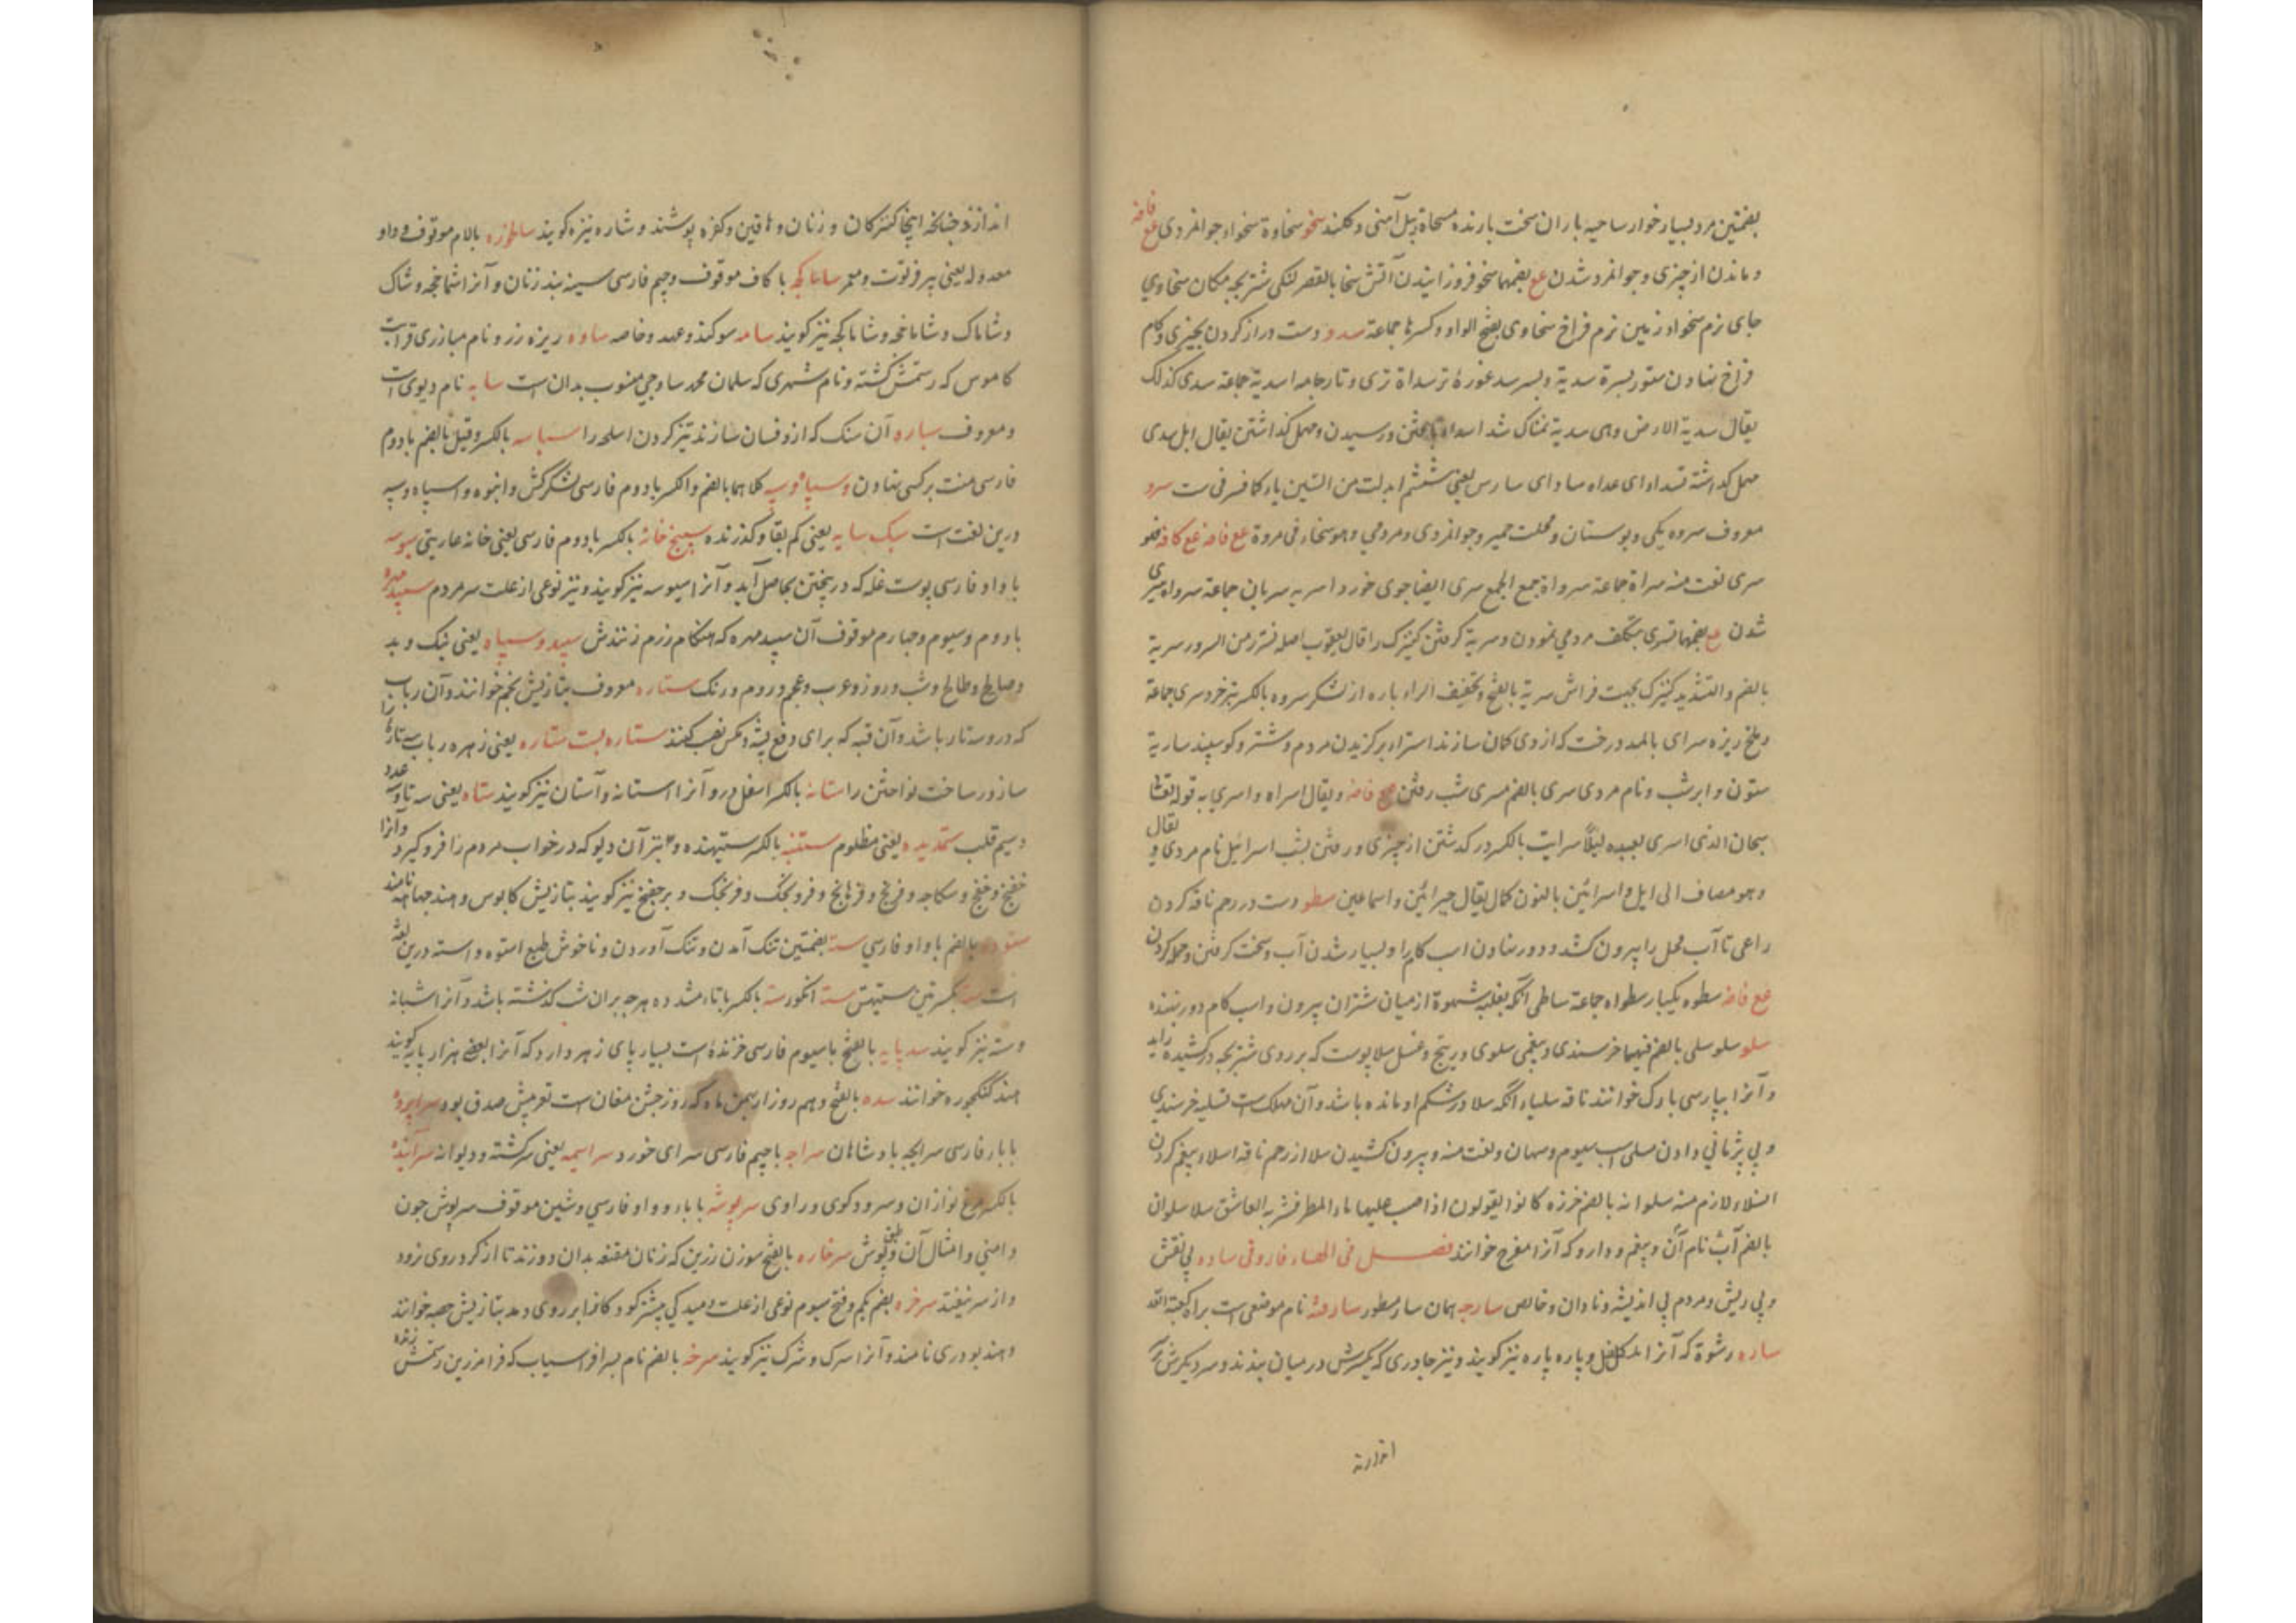 بضمتین مرد بسیار خوار ساحیه باران سخت بارنده مسحاة بیل آهنی و کلند سخو سخاوة سخواء جوانمردی فع فاضه
و ماندن از چیزی و جوانمرد شدن فع بضمهما سخو فروزانیدن آتش سخا بالقصر لنکی شتربچه مکان سخاوی
جای نرم سخواء زمین نرم فراخ سخاوی بفتح الواو و کسرها جماعة سدو دست دراز کردن بچیزی و کام
فراخ نهادن ستور بسرة سدیة و بسر سد غورهٔ تر سداة تری و تار جامه اسدیة جماعة سدی کذلک
یقال سدیة الارض وهی سدیة نمناک شد اسداء یافتن و رسیدن و مهمل کذاشتن یقال ابل سدی
مهمل کذاشته سادای سادس یعنی ششم ابدلت من السین یاء سرو
معروف سروه یکی و بوستان و محلت حمیر و جوانمردی و مردمی وهو سخاء فی مروة فع فاضه فع کافه فهو
سری نعت منه سراة جماعة سرواة جمع الجمع سری ایضا جوی خورد اسریه سریان جماعة سرواء
شدن فع بضمهما تسری بتکلف مردمی نمودن و سریة کرفتن کنیزک را قال یعقوب اصله تسرر من السرور سریة
بالضم و التشدید کنیزک بجهت فراش سریة بالفتح و تخفیف الراء پاره از لشکر سروه بالکسر تیر خرد سری جماعة
و ملخ ریزه سرای بالمد درخت که از وی کمان سازند استراء برکزیدن مردم و شتر و کوسپند ساریة
ستون و ابر شب و نام مردی سری بالضم مسری شب رفتن فع فاضه و یقال اسراه و اسری به قوله تعالی
سبحان الذی اسری بعبده لیلاً سرایت بالکسر در کذشتن از چیزی و رفتن بشب اسرائیل نام مردی و یقال
وهو مضاف الی ایل و اسرائین بالنون کمال یقال جبرائین و اسماعین سطو دست در رحم ناقه کردن
راعی تا آب فحل را بیرون کشد و دور نهادن اسب کام را و بسیار شدن آب و سخت کرفتن و حمله کردن
فع فاضه سطوه یکبار سطواه جماعة ساطی آنکه بغلبه شهوة از میان شتران بیرون و اسب کام دور نهنده
سلو سلو سلی بالضم فیهما خرسندی و بیغمی سلوی و عسل سلا پوست که بر روی شتربچه درکشیده زاید
و آنرا بپارسی یارک خوانند ناقه سلیاء آنکه سلا در شکم او مانده باشد و آن مهلک است تسلیه خرسندی
و بی پژمانی دادن مسلی اسب سیوم و نعت منه و بیرون کشیدن سلا از رحم ناقه اسلاء بیغم کردن
انسلاء لازم منه سلوانه بالضم خرزه کانوا یقولون اذا صب علیها ماء المطر فشربه العاشق سلا سلوان
بالضم آب نام آن و بیغم و دارو که آنرا مفرح خوانند فصل فی الهاء فاروقی ساده بی نقش
و بی ریش و مردم بی اندیشه و نادان و خالص سارجه همان سار مسطور سارقه نام موضعی است براه کعبة الله
ساره رشوة که آنرا و پاره پاره نیز کویند و نیز چادری که یکسرش در میان بندند و سر دیکرش بر
اندازند
اندازند چنانچه اینجا کنیزکان و زنان و پوشند و شاره نیزه کویند سالخورده بالام موقوف و واو
معدوله یعنی پیر فرتوت و معمر ساماکچه با کاف موقوف و جیم فارسی سینه بند زنان و آنرا شماخجه و شاک
و شاماک و شاماخچه و شاماکچه نیز کویند سامه سوکند و عهد و خاصه ساوه ریزه زر و نام مبارزی قرابت
کاموس که رستمش کشته و نام شهری که سلمان محمد ساوجی منسوب بدان است سایه نام دیوی است
و معروف ساره آن سنک که ازو فسان سازند تیز کردن اسلحه را سپاسه بالکسر و قیل بالضم با دوم
فارسی منت برکسی نهادن وسپاه و سپه کلاهما بالضم و الکسر با دوم فارسی لشکرکش و انبوه و اسپاه و سپه
درین لغت است سبک سایه یعنی کم بقا و کذرنده سپنج خانه بالکسر با دوم فارسی یعنی خانه عاریتی سبوسه
با واو فارسی پوست غله که در بیختن بحاصل آید و آنرا سیوسه نیز کویند و نیز نوعی از علت سر مردم سپیدمهره
با دوم و سیوم و چهارم موقوف آن سپید مهره که هنکام رزم زنندش سپید و سیاه یعنی نیک و بد
و صالح و طالح و شب و روز و عرب و عجم و روم و زنک ستاره معروف بتازیش نجم خوانند و آن رباب را
که درو سه تار باشد و آن قبه که برای دفع پشه و مکس نصب کنند ستاره بست ستاره یعنی زهره رباب سه تاره را
ساز و ساخت نواختن را ستانه بالکسر اسفل در و آنرا استانه و آستان نیز کویند ستاه یعنی سه تا و سه عدد
و سیم قلب ستمدیده یعنی مظلوم ستنبه بالکسر ستیهنده و نیز آن دیو که در خواب مردم را فرو کیرد و آنرا
خفج و خفنج و سکاچه و فرنج و فرهانج و فرونجک و فرنجک و برخفج نیز کویند بتازیش کابوس و هند جهانپه نامند
ستوده بالضم با واو فارسی سته بضمتین تنک آمدن و تنک آوردن و ناخوش طبع استوه و استه درین لغت
است سته بکسرتین ستیهش سته انکور سته بالکسر با تاء مشدده هرچه بران شب کذشته باشد و آنرا شبانه
و سته نیز کویند سدپایه بالفتح با سیوم فارسی خزندهٔ است بسیار پای زهر دارد که آنرا بعضی هزار پایه کویند
هند کنکجوره خوانند سده بالفتح دهم روز از بهمن ماه که روز جشن مغان است تعریبش صدق بود سراپرده
با باء فارسی سرایچه پادشاهان سراچه با جیم فارسی سرای خورد سراسیمه یعنی سرکشته و دیوانه سرآینده
بالکسر مرغ نوازان و سرود کوی و راوی سرپوشه با باء و واو فارسی و شین موقوف سرپوش چون
دامنی و امثال آن و طبق پوش سرخاره بالفتح سوزن زرین که زنان مقنعه بدان دوزند تا از کرد روی نرود
و از سر نیفتد سرخزه بضم یکم و فتح سیوم نوعی از علت دمیدکی بیشتر کودکانرا بر روی دمد بتازیش حصبه خوانند
و هند بودری نامند و آنرا سرک و سُرک نیز کویند سرخه بالضم نام پسر افراسیاب که فرامرزین رستمش زنده